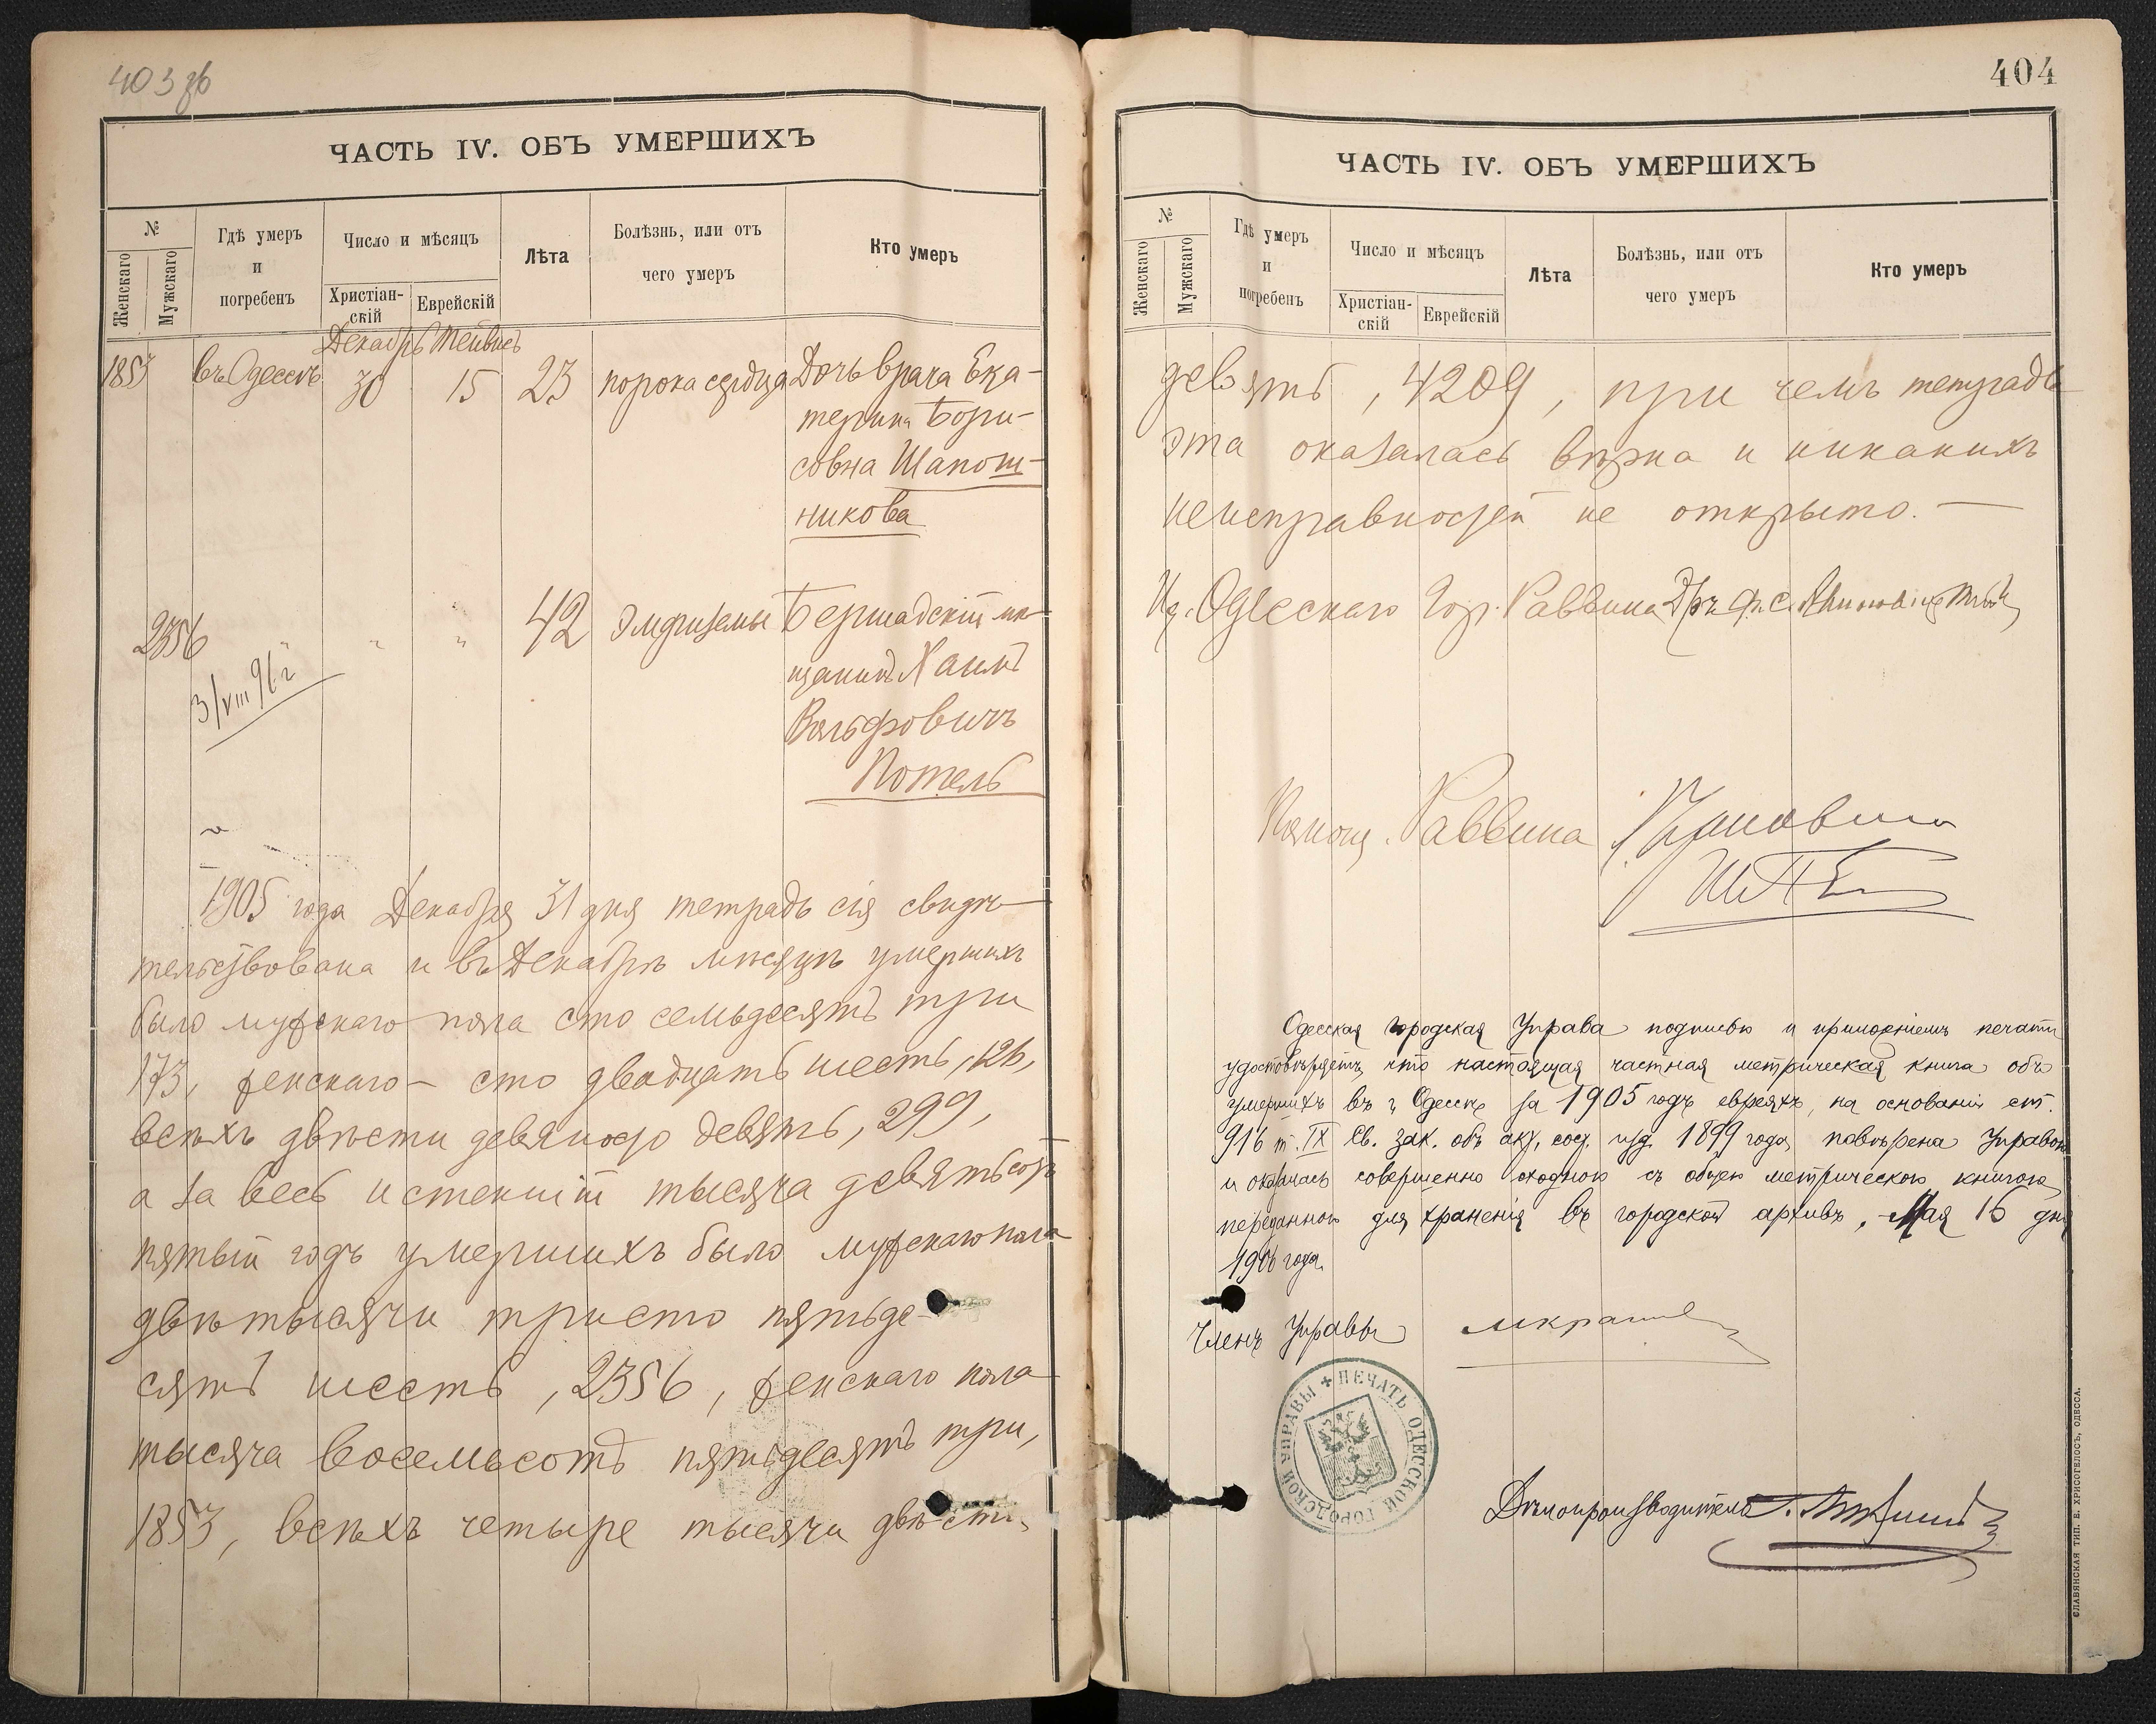 403 об
ЧАСТЬ IV. ОБЪ УМЕРШИХЪ
№
Женскаго
Мужскаго
Гдѣ умеръ и погребенъ
Число и мѣсяцъ
Христіан-скій
Еврейскій
Лѣта
Болѣзнь, или отъ чего умеръ
Кто умеръ
Декабрь Тейвисъ
1853 въ Одессѣ 30 15 23 порока сердца Дочь врача Ека-
терина Бори-
совна Шапош-
никова
2356 " " " 42 Эмфиземы Бершадскій мѣ-
щанинъ Хаимъ
Вольфовичъ
Потель
3/VIII 96 г
1905 года Декабря 31 дня тетрадь сія свидѣ-
тельствована и въ Декабрѣ мѣсяцѣ умершихъ
было мужскаго пола сто семьдесятъ три
173, женскаго – сто двадцать шесть, 126,
всѣхъ двѣсти девяносто девять, 299,
а за весь истекшій тысяча девятьсотъ
пятый годъ умершихъ было мужскаго пола
двѣ тысячи триста пятьде-
сятъ шесть, 2356, женскаго пола
тысяча восемьсотъ пятьдесятъ три,
1853, всѣхъ четыре тысячи двѣсти
404
ЧАСТЬ IV. ОБЪ УМЕРШИХЪ
№
Женскаго
Мужскаго
Гдѣ умеръ и погребенъ
Число и мѣсяцъ
Христіан-скій
Еврейскій
Лѣта
Болѣзнь, или отъ чего умеръ
Кто умеръ
девять, 4209, при чемъ тетрадь
эта оказалась вѣрна и никакихъ
неисправностей не открыто. —
Одесскаго Гор. Раввина Д-ръ
Помощ. Раввина
Одесская Городская Управа подписью и приложеніемъ печати
удостовѣряетъ, что настоящая частная метрическая книга объ
умершихъ въ г. Одессѣ за 1905 годъ евреяхъ, на основаніи ст.
916 т. IX Св. Зак. объ акт. сост. изд. 1899 года, повѣрена Управою
и оказалась совершенно сходною съ общею метрическою книгою,
переданною для храненія въ городской архивъ, Мая 16 дня
1906 года.
Членъ Управы
ПЕЧАТЬ ОДЕССКОЙ ГОРОДСКОЙ УПРАВЫ
Дѣлопроизводитель
СЛАВЯНСКАЯ ТИП. Е. ХРИСОГЕЛОСЪ, ОДЕССА.